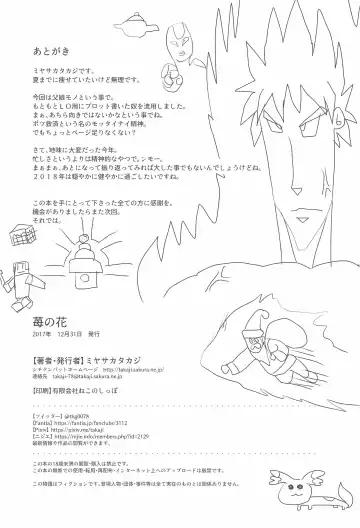 あとがき
ミヤサカタカジです。
夏までに痩せていたいけど無理です。
今回は父娘モノという事で。
もともとＬＯ用にプロット書いた奴を流用しました。
まぁ、あちら向きではないかなという事でね。
ボツ救済という名のモッタイナイ精神。
でもちょっとページ足りなくない？
さて、地味に大変だった今年。
忙しさというよりは精神的なやつで。ンモー。
まぁまぁ、あとになって振り返ってみれば大した事でもないんでしょうけどね。
２０１８年は穏やかに健やかに過ごしたいですね。
この本を手にとって下さった全ての方に感謝を。
機会がありましたらまた次回。
それでは。
苺の花
2017年　12月31日　発行
【著者・発行者】ミヤサカタカジ
シチテンバットホームページ　http://takaji.sakura.ne.jp/
連絡先　takaji-78@takaji.sakura.ne.jp
【印刷】有限会社ねこのしっぽ
【ツイッター】@tkj0078
【Fantia】https://fantia.jp/fanclubs/3112
【Pixiv】https://pixiv.me/takaji
【ニジエ】https://nijie.info/members.php?id=2129
最新情報や作品の閲覧ができます。
この本の18歳未満の閲覧・購入は禁止です。
この本の無断での使用・転用・再配布・インターネット上へのアップロードは厳禁です。
この物語はフィクションです。登場人物・団体・事件等は全て実在のものとは関係ありません。